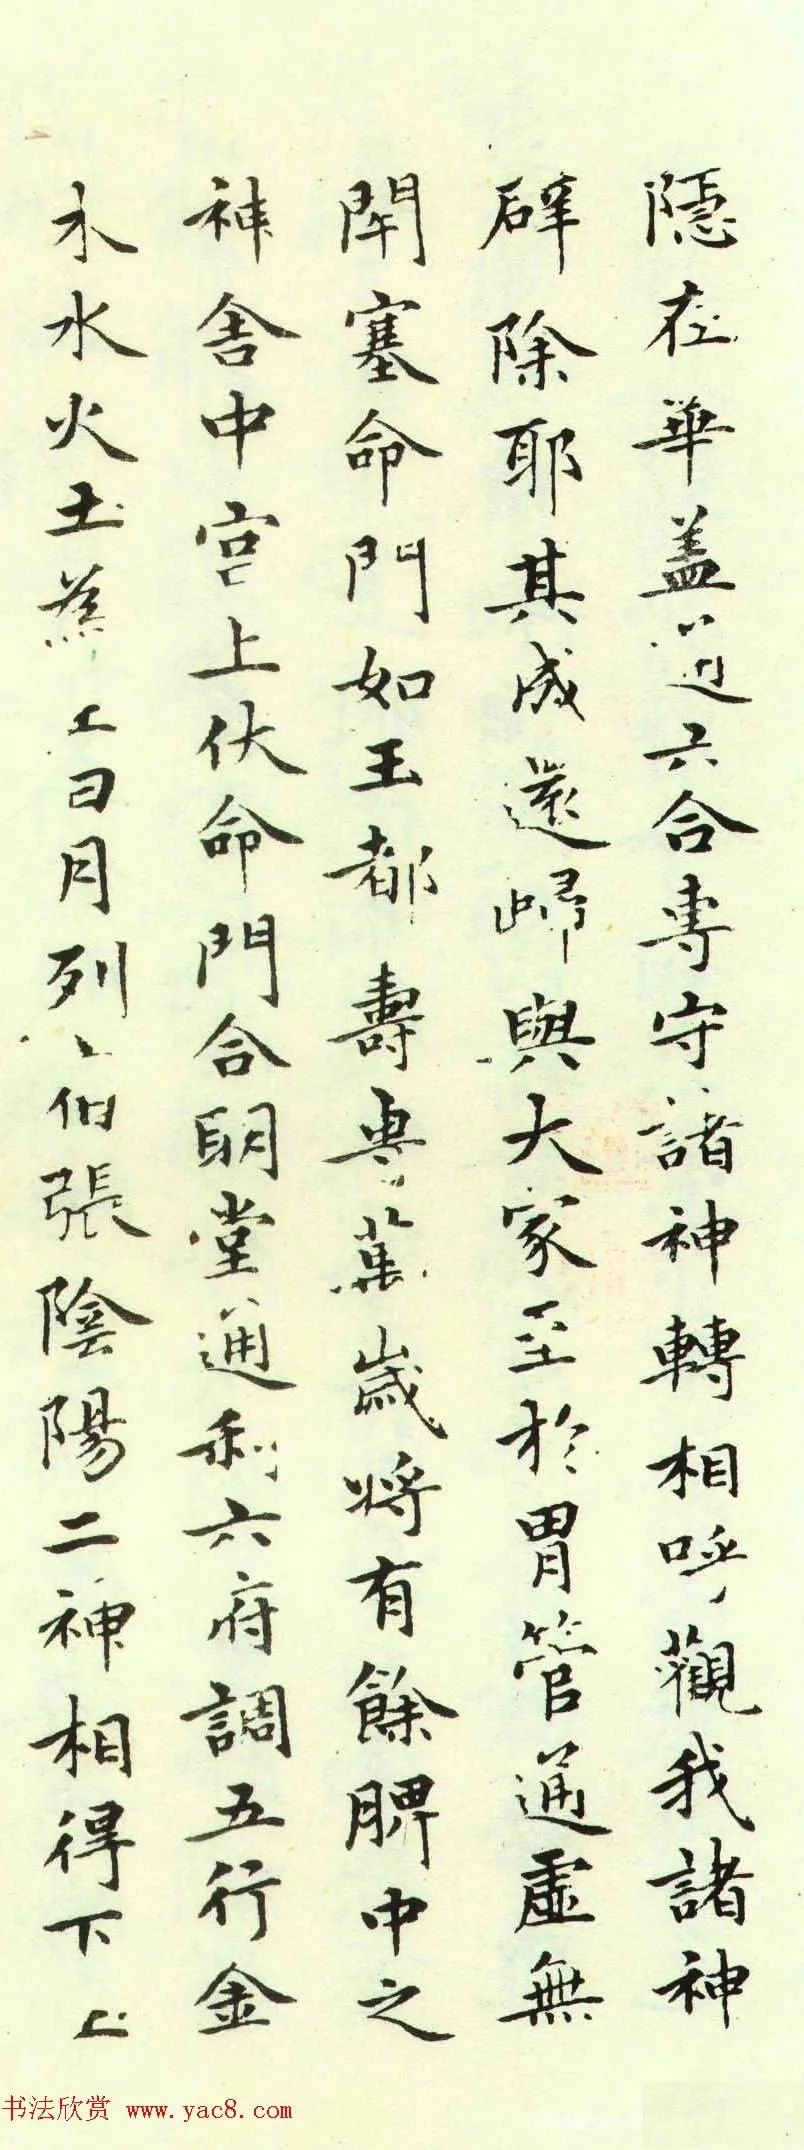 隱在華蓋通六合專守諸神轉相呼觀我諸神
辟除耶其成還歸與大家至於胃管通虛無
閉塞命門如玉都壽專萬歲將有餘脾中之
神舍中宮上伏命門合明堂通利六府調五行金
木水火土為上日月列伯張陰陽二神相得下上
书法欣赏 www.yac8.com